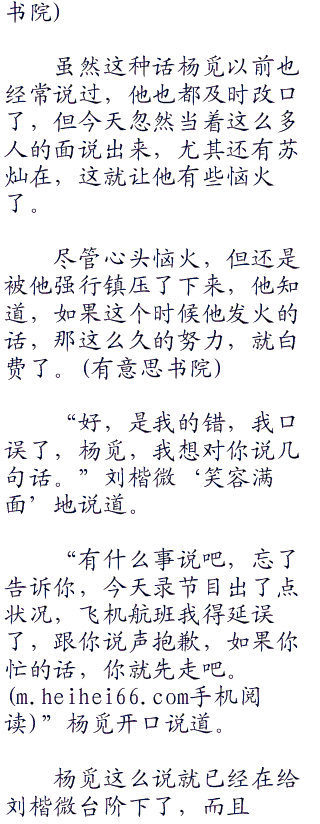 书院)
虽然这种话杨觅以前也
经常说过，他也都及时改口
了，但今天忽然当着这么多
人的面说出来，尤其还有苏
灿在，这就让他有些恼火
了。
尽管心头恼火，但还是
被他强行镇压了下来，他知
道，如果这个时候他发火的
话，那这么久的努力，就白
费了。(有意思书院)
“好，是我的错，我口
误了，杨觅，我想对你说几
句话。”刘楷微‘笑容满
面’地说道。
“有什么事说吧，忘了
告诉你，今天录节目出了点
状况，飞机航班我得延误
了，跟你说声抱歉，如果你
忙的话，你就先走吧。
(m.heihei66.com手机阅
读)”杨觅开口说道。
杨觅这么说就已经在给
刘楷微台阶下了，而且